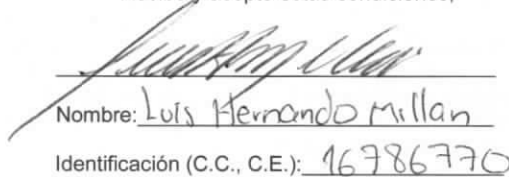 Nombre: Luis Hernando Millan
Identificación (C.C., C.E.): 16786770